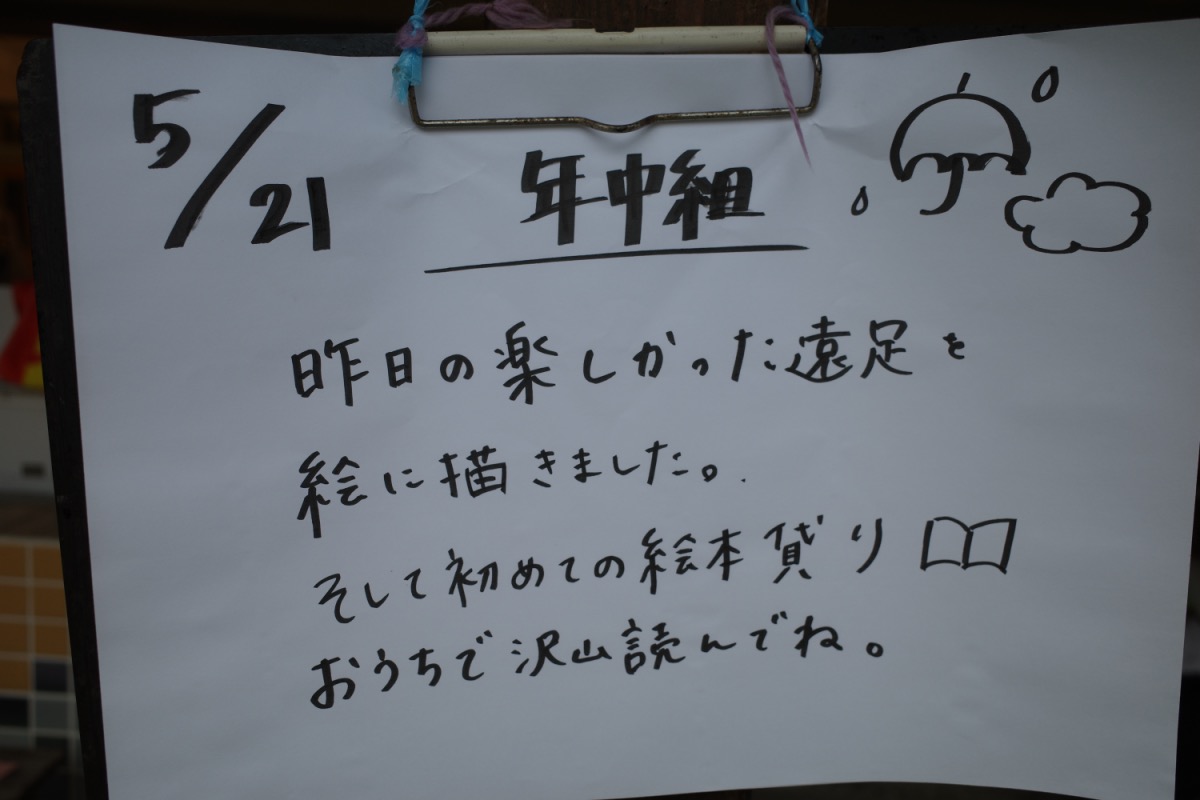 5/21
年中組
昨日の楽しかった遠足を
絵に描きました。
そして初めての絵本貸り
おうちで沢山読んでね。